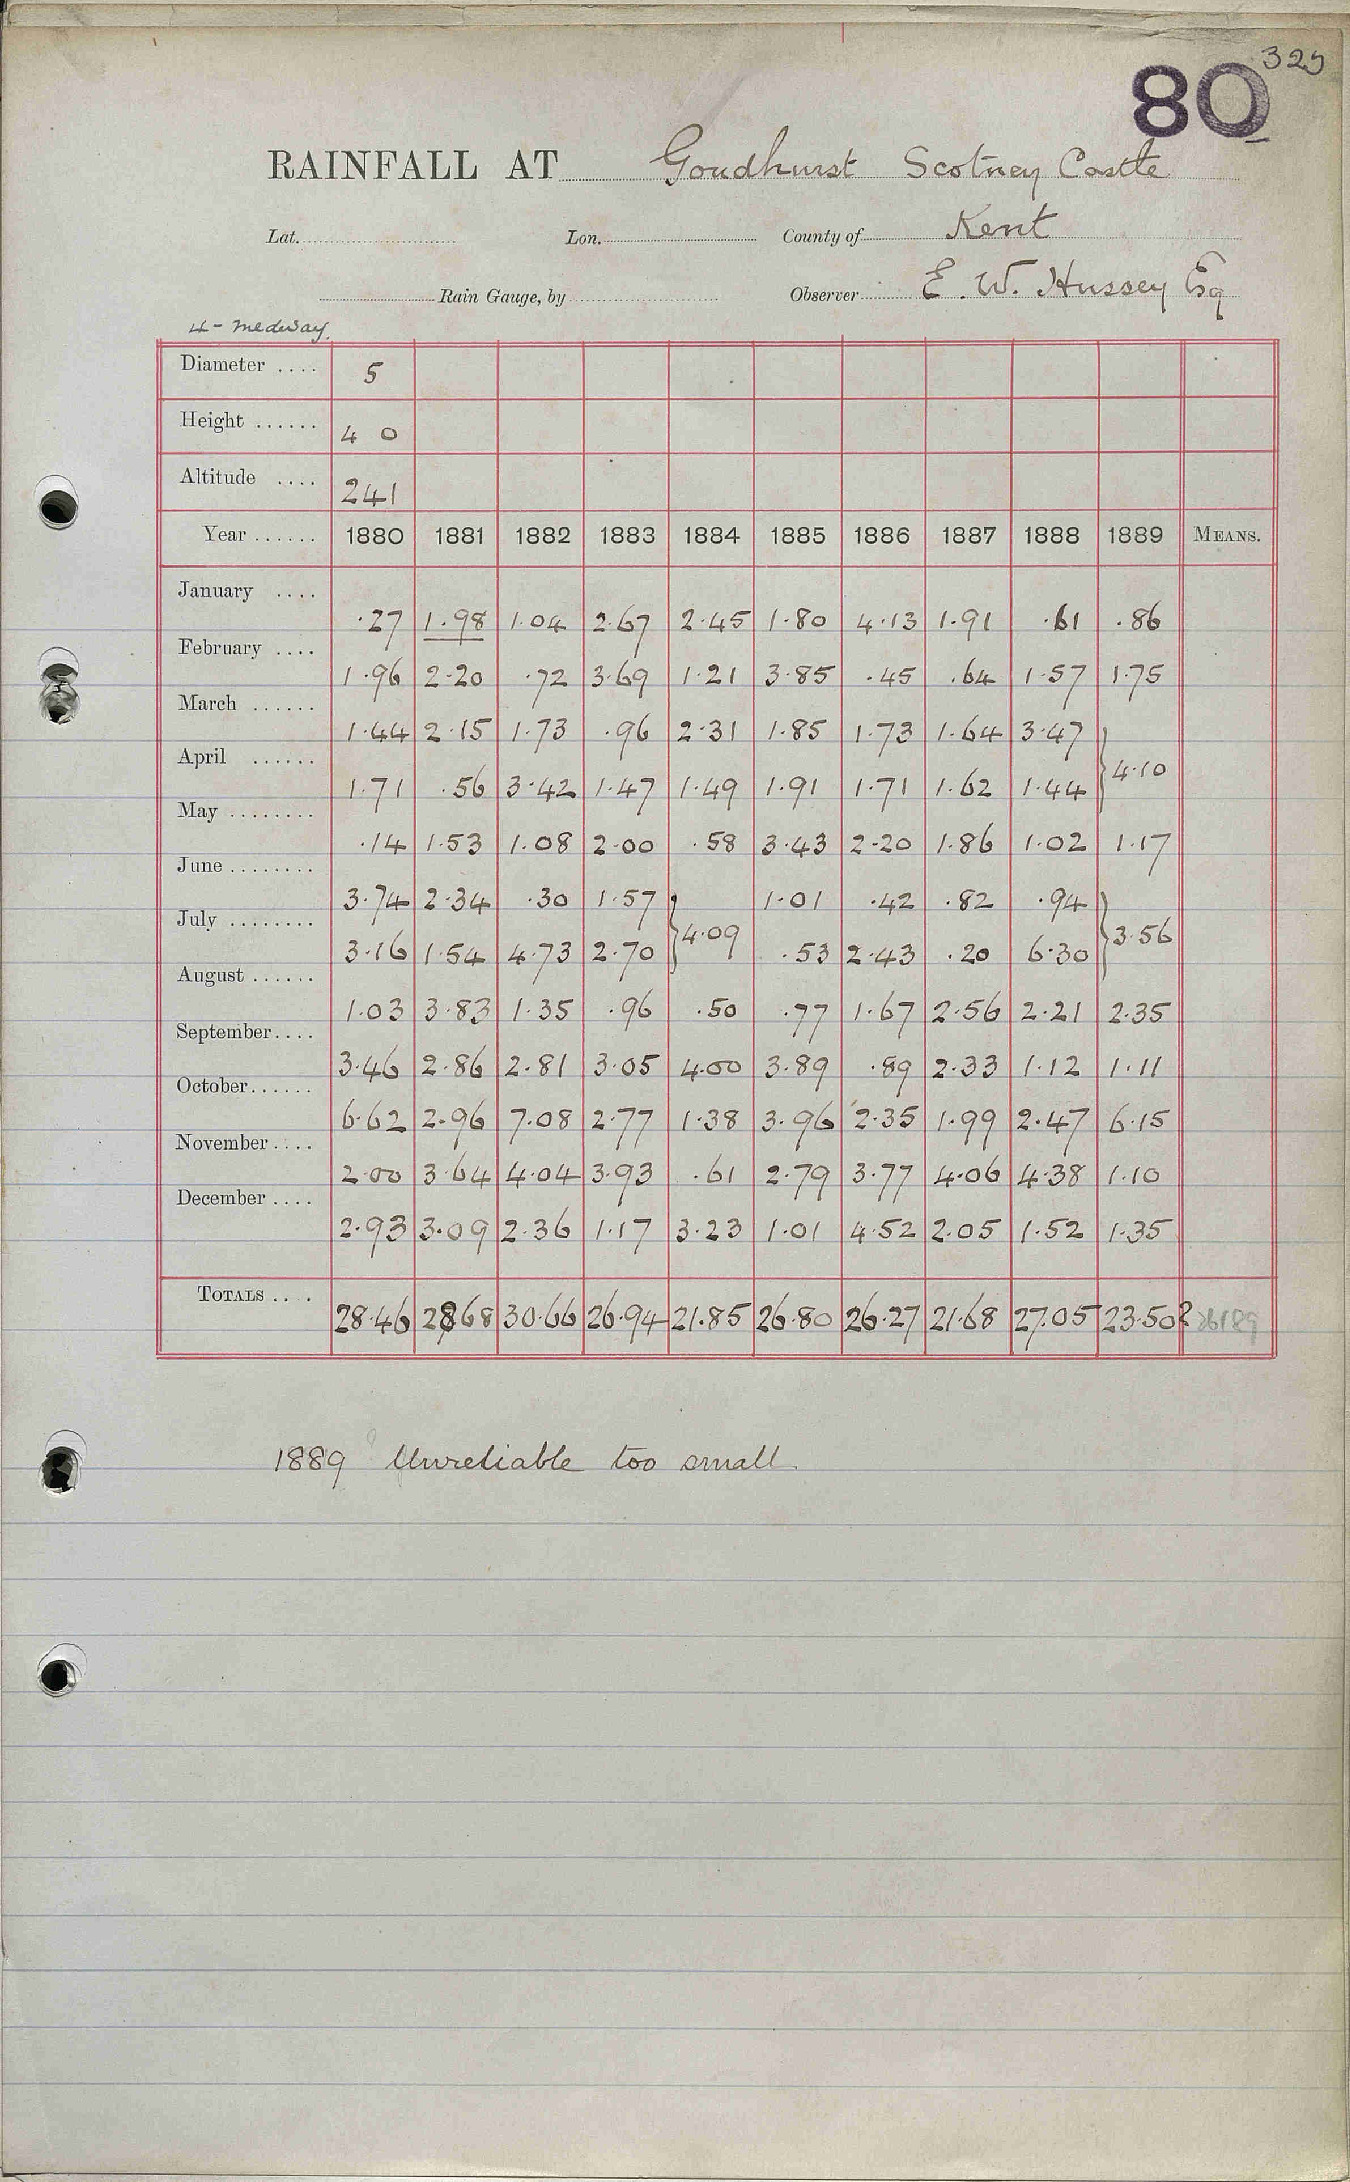 329
80
RAINFALL AT Goudhurst Scotney Castle
Lat. Lon. County of Kent
Rain Gauge, by Observer E. W. Hussey Esq
4 - Medway.
Diameter .... 5
Height ...... 4 0
Altitude .... 241
Year ...... 1880 1881 1882 1883 1884 1885 1886 1887 1888 1889 MEANS.
January .... .27 1.98 1.04 2.67 2.45 1.80 4.13 1.91 .61 .86
February .... 1.96 2.20 .72 3.69 1.21 3.85 .45 .64 1.57 1.75
March ...... 1.44 2.15 1.73 .96 2.31 1.85 1.73 1.64 3.47
April ...... 1.71 .56 3.42 1.47 1.49 1.91 1.71 1.62 1.44 } 4.10
May ........ .14 1.53 1.08 2.00 .58 3.43 2.20 1.86 1.02 1.17
June ........ 3.74 2.34 .30 1.57 } 4.09 1.01 .42 .82 .94 } 3.56
July ........ 3.16 1.54 4.73 2.70 .53 2.43 .20 6.30
August ...... 1.03 3.83 1.35 .96 .50 .77 1.67 2.56 2.21 2.35
September.... 3.46 2.86 2.81 3.05 4.00 3.89 .89 2.33 1.12 1.11
October...... 6.62 2.96 7.08 2.77 1.38 3.96 2.35 1.99 2.47 6.15
November.... 2.00 3.64 4.04 3.93 .61 2.79 3.77 4.06 4.38 1.10
December .... 2.93 3.09 2.36 1.17 3.23 1.01 4.52 2.05 1.52 1.35
TOTALS ... . 28.46 2868 30.66 26.94 21.85 26.80 26.27 21.68 27.05 23.50?
1889 Unreliable too small.